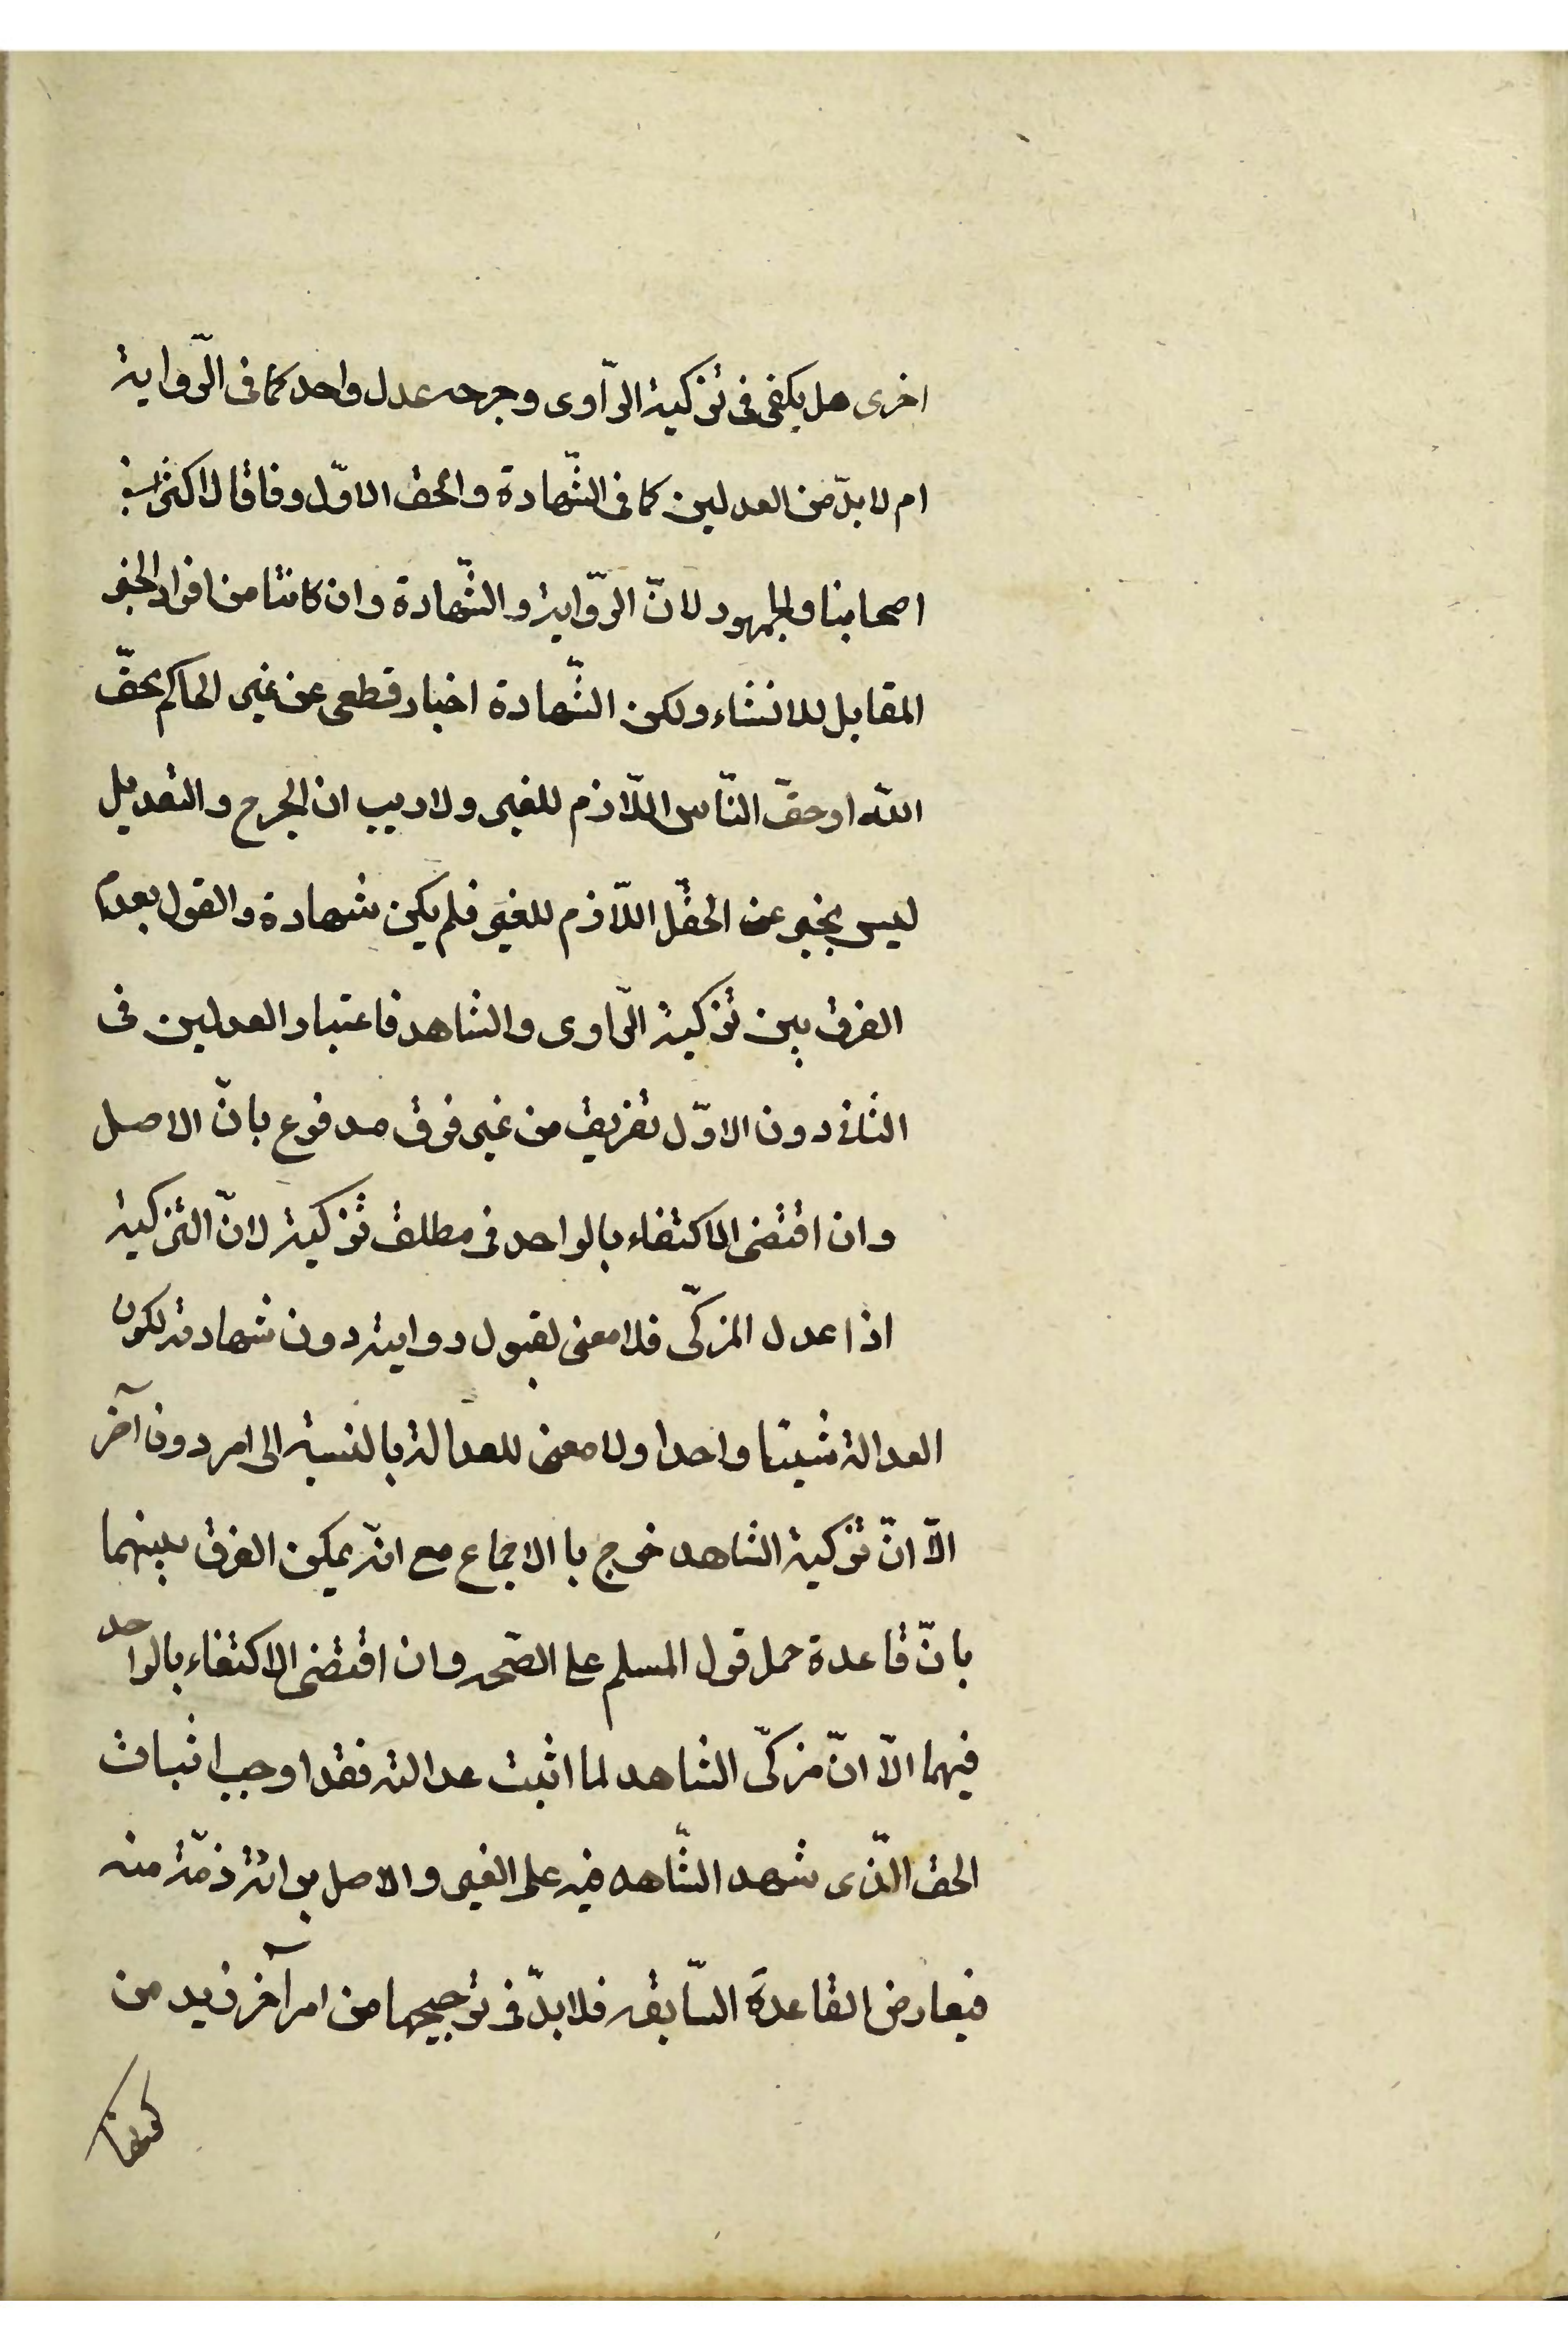 اخرى هل يكفى فى تزكية الرّاوى وجرحه عدل واحد كما فى الرّواية
ام لا بدّ من العدلين كما فى الشّهادة والحق الاوّل وفاقا لاكثر
اصحابنا والجمهور لانّ الرّواية والشّهادة وان كانتا من افراد الخبر
المقابل للانشاء ولكن الشّهادة اخبار قطعى عن غير الحاكم بحقّ
اللّه او حقّ النّاس اللّازم للغير ولا ريب ان الجرح والتعديل
ليس بخبر عن الحقّ اللّازم للغير فلم يكن شهادة والقول بعدم
الفرق بين تزكية الرّاوى والشاهد فاعتبار العدلين فى
الثانى دون الاوّل تفريق من غير فرق مدفوع بانّ الاصل
وان اقتضى الاكتفاء بالواحد فى مطلق تزكية لانّ التزكية
اذا عدل المزكّى فلا معنى لقبول روايته دون شهادته لكون
العدالة شيئا واحدا ولا معنى للعدالة بالنسبة الى امر دون آخر
الّا انّ تزكية الشاهد خرج با الاجماع مع انّه يمكن الفرق بينهما
بانّ قاعدة حمل قول المسلم على الصّحه وان اقتضى الاكتفاء بالواحد
فيهما الّا انّ مزكّى الشاهد لما اثبت عدالته فقد اوجب اثبات
الحق الّذى شهد الشّاهد فيه على الغير والاصل برائة ذمّته منه
فيعارض القاعدة السّابقه فلا بدّ فى ترجيحها من امر آخر زيد من